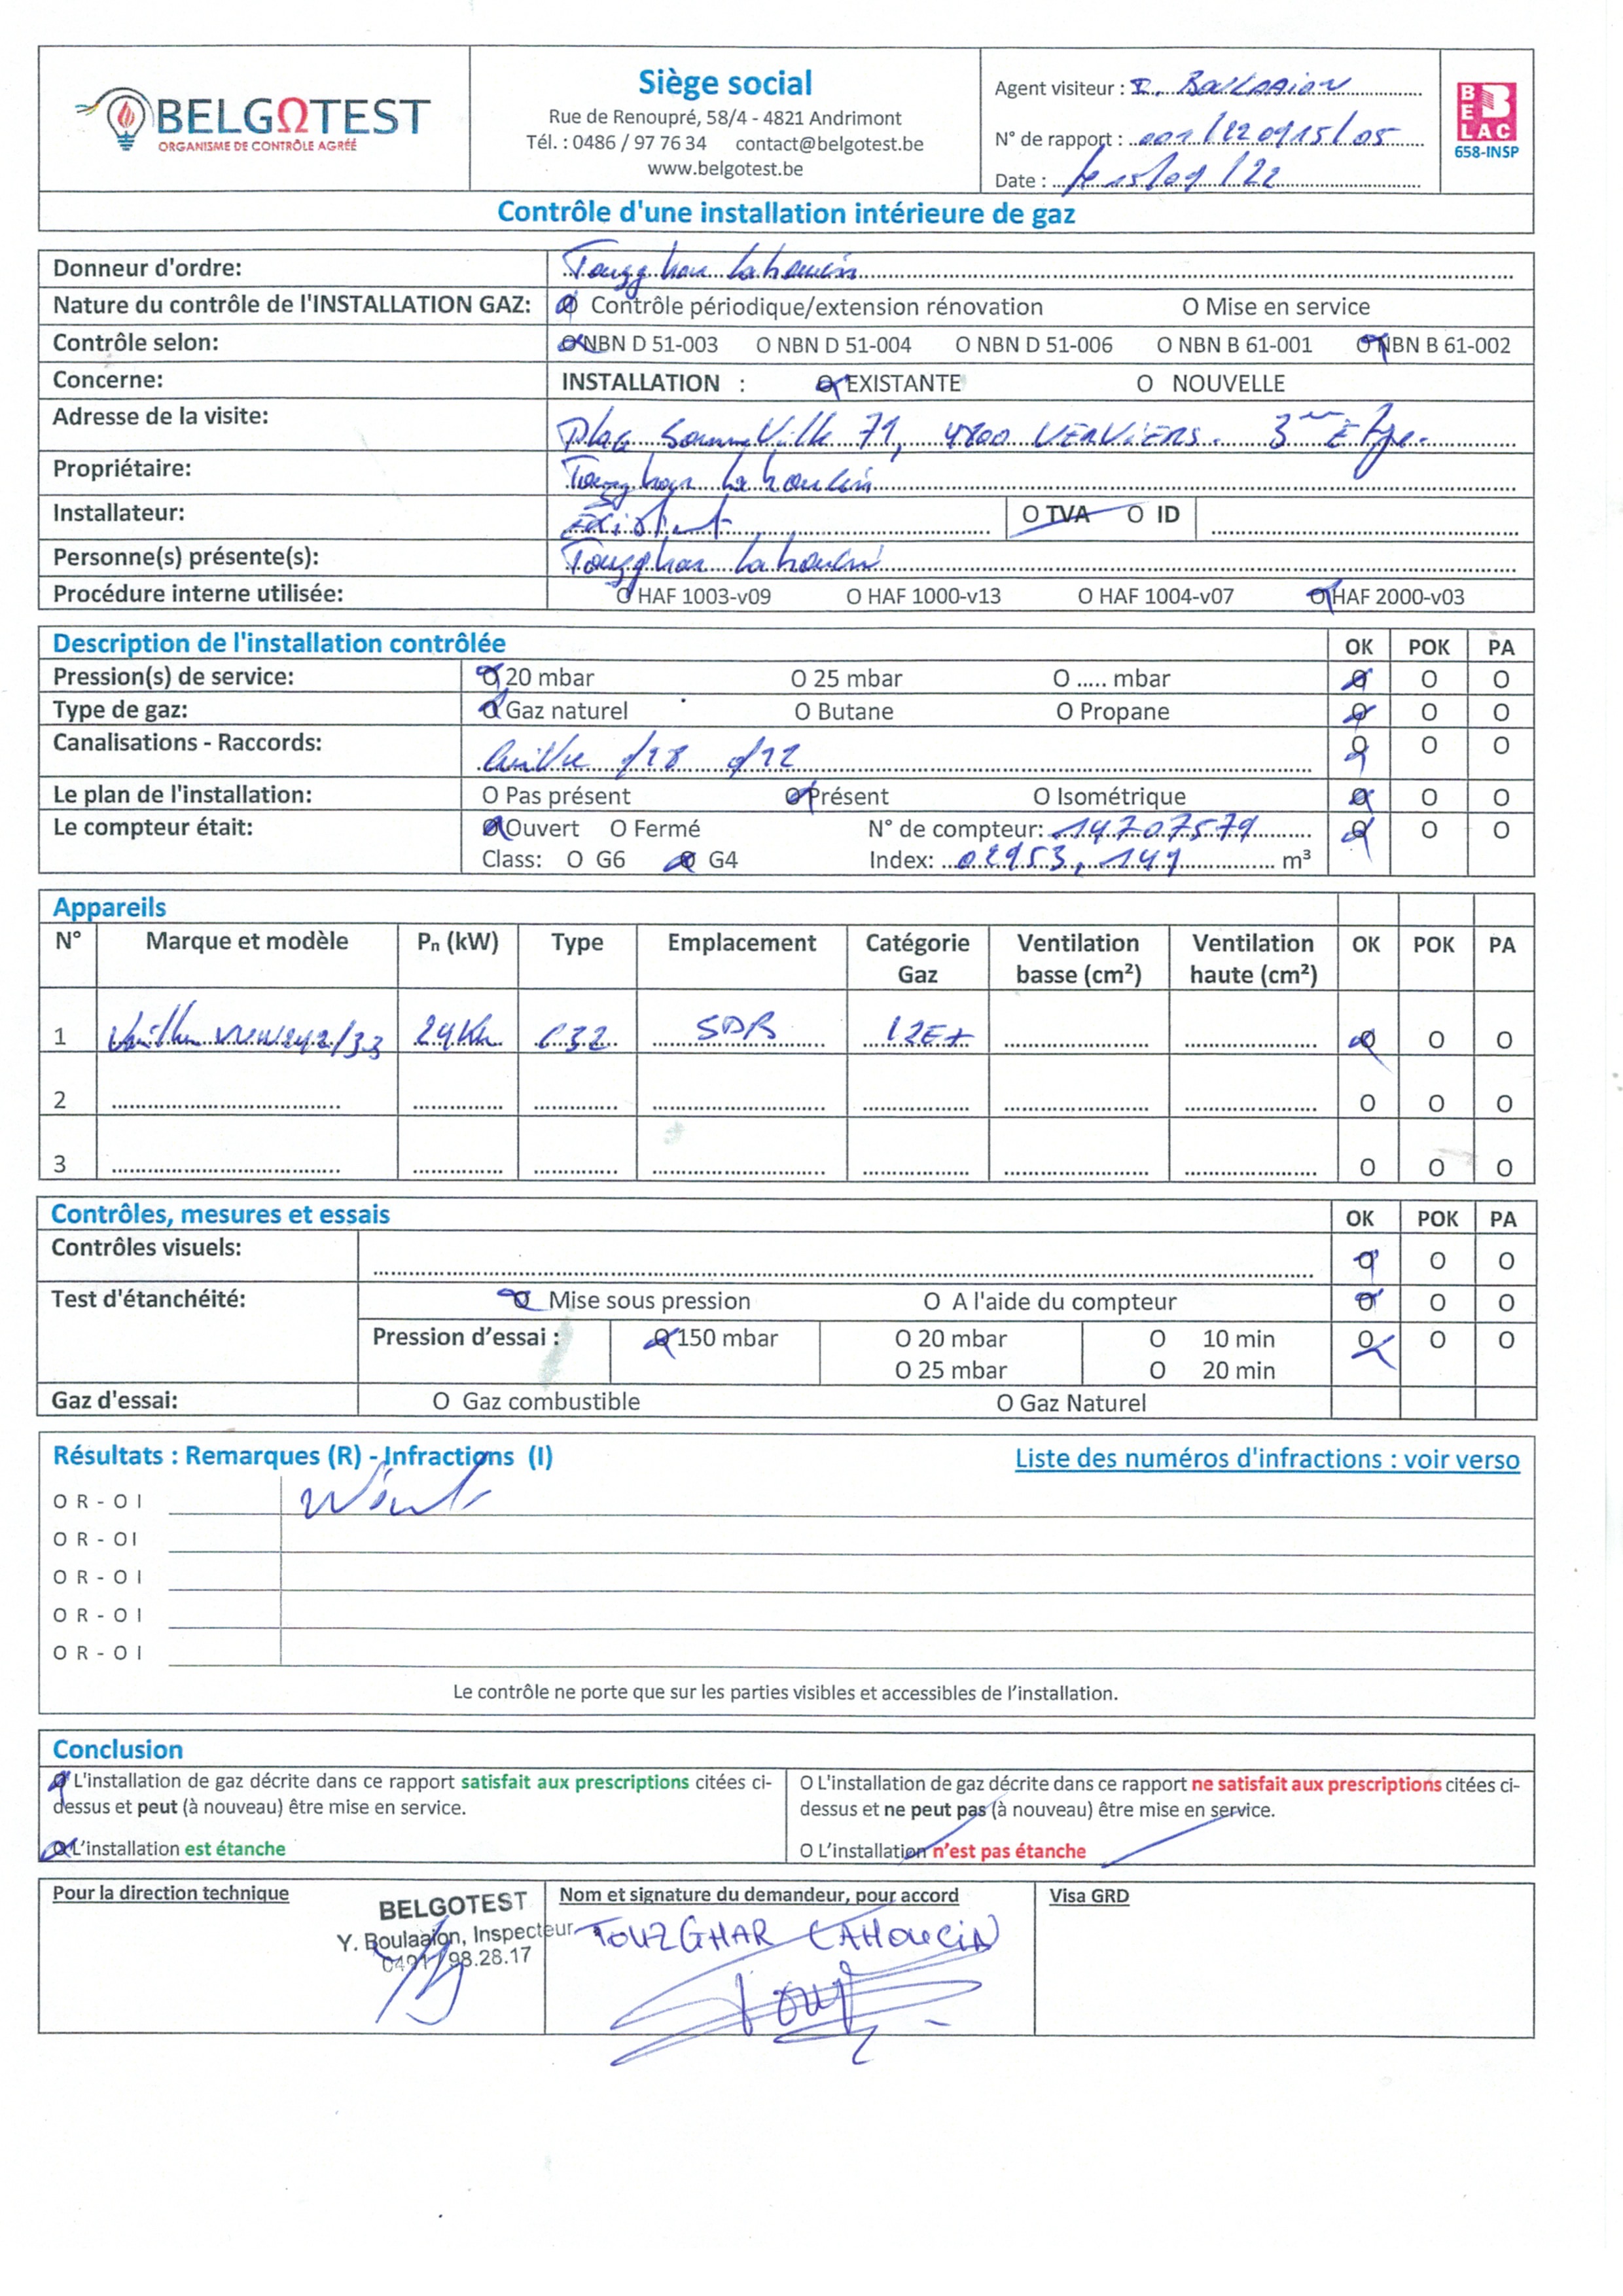 BELGΩTEST
ORGANISME DE CONTRÔLE AGRÉÉ
Siège social
Rue de Renoupré, 58/4 - 4821 Andrimont
Tél. : 0486 / 97 76 34 contact@belgotest.be
www.belgotest.be
Agent visiteur :
N° de rapport : 001/220915/05
Date : le 15/09/22
BELAC
658-INSP
Contrôle d'une installation intérieure de gaz
Donneur d'ordre: Touzghar Lahoucin
Nature du contrôle de l'INSTALLATION GAZ: O Contrôle périodique/extension rénovation O Mise en service
Contrôle selon: O NBN D 51-003 O NBN D 51-004 O NBN D 51-006 O NBN B 61-001 O NBN B 61-002
Concerne: INSTALLATION : O EXISTANTE O NOUVELLE
Adresse de la visite: Place SommeVille 71, 4800 VERVIERS. 3
Propriétaire: Touzghar Lahoucin
Installateur: Existant O TVA O ID
Personne(s) présente(s): Touzghar Lahoucin
Procédure interne utilisée: O HAF 1003-v09 O HAF 1000-v13 O HAF 1004-v07 O HAF 2000-v03
Description de l'installation contrôlée OK POK PA
Pression(s) de service: O 20 mbar O 25 mbar O ..... mbar O O O
Type de gaz: O Gaz naturel O Butane O Propane O O O
Canalisations - Raccords: O O O
Le plan de l'installation: O Pas présent O Présent O Isométrique O O O
Le compteur était: O Ouvert O Fermé N° de compteur: 14707579 O O O
Class: O G6 O G4 Index: 02953,149 m³
Appareils
N° Marque et modèle Pn (kW) Type Emplacement Catégorie Gaz Ventilation basse (cm²) Ventilation haute (cm²) OK POK PA
1 24Kw C32 SDB I2E+ O O O
2 O O O
3 O O O
Contrôles, mesures et essais OK POK PA
Contrôles visuels: O O O
Test d'étanchéité: O Mise sous pression O A l'aide du compteur O O O
Pression d'essai : O 150 mbar O 20 mbar O 10 min O O O
O 25 mbar O 20 min
Gaz d'essai: O Gaz combustible O Gaz Naturel
Résultats : Remarques (R) - Infractions (I) Liste des numéros d'infractions : voir verso
O R - O I Néant
O R - O I
O R - O I
O R - O I
O R - O I
Le contrôle ne porte que sur les parties visibles et accessibles de l'installation.
Conclusion
O L'installation de gaz décrite dans ce rapport satisfait aux prescriptions citées ci-
dessus et peut (à nouveau) être mise en service.
O L'installation est étanche
O L'installation de gaz décrite dans ce rapport ne satisfait aux prescriptions citées ci-
dessus et ne peut pas (à nouveau) être mise en service.
O L'installation n'est pas étanche
Pour la direction technique
BELGOTEST
Y. Boulaaion, Inspecteur
0491/98.28.17
Nom et signature du demandeur, pour accord
TOUZGHAR LAHOUCIN
Visa GRD